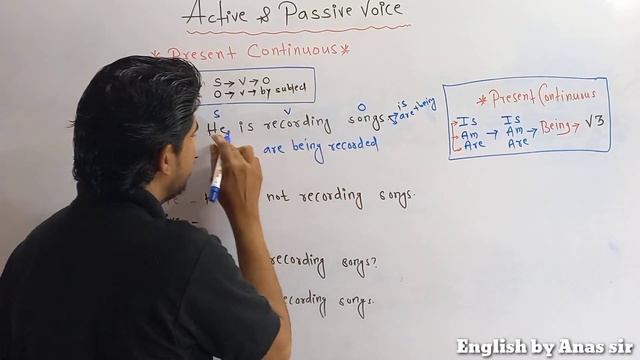 Active & Passive Voice
* Present Continuous *
S → V → O
O → V → by subject
S V O is
He is recording songs are + being
are being recorded
not recording songs.
recording songs?
recording songs.
* Present Continuous
Is Is
Am → Am → Being → V3
Are Are
English by Anas sir